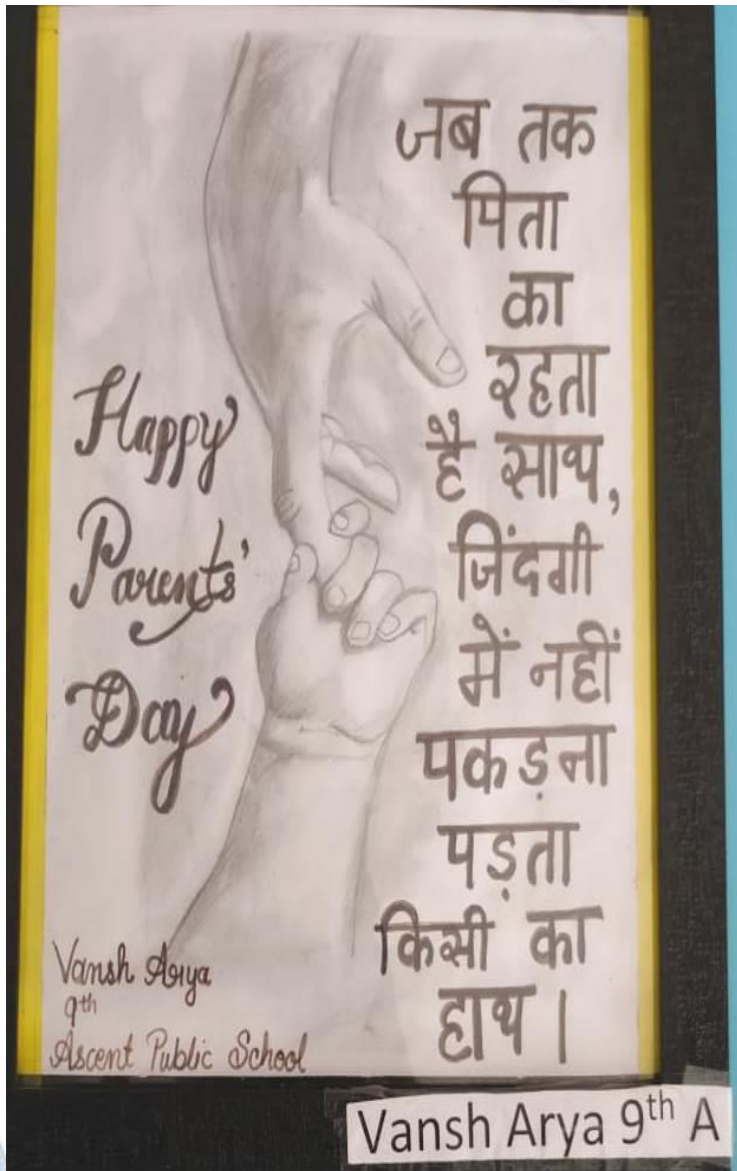 Happy
Parents'
Day
जब तक
पिता
का
रहता
है साथ,
जिंदगी
में नहीं
पकड़ना
पड़ता
किसी का
हाथ।
Vansh Arya
9th
Ascent Public School
Vansh Arya 9th A